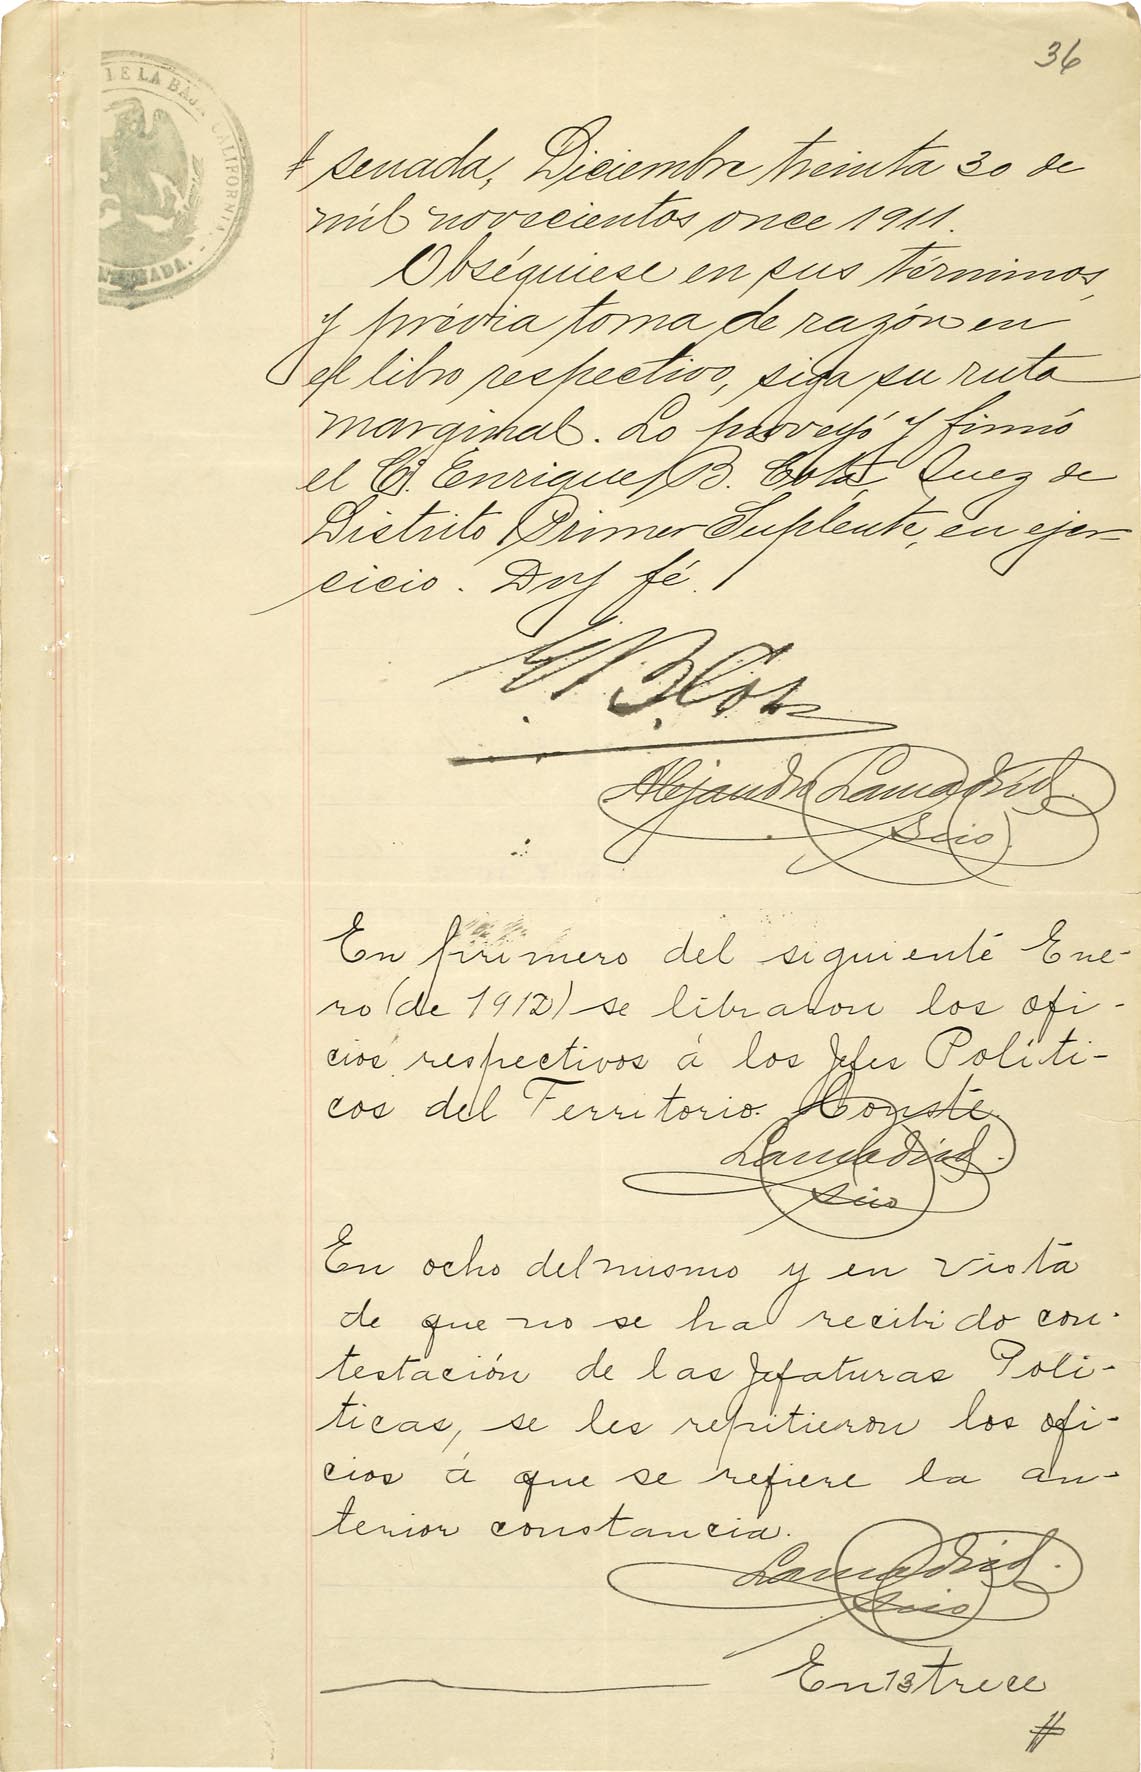 36
DE LA BAJA CALIFORNIA.
ENSENADA.
# senada, Diciembre treinta 30 de
mil novecientos once 1911.
Obséquiese en sus términos,
y prévia toma de razón en
el libro respectivo, siga su ruta
marginal. Lo proveyó y firmó
el C. Enrique B. Cota, Juez de
Distrito Primer Suplente, en ejer-
cicio. Doy fé.
E B Cota
Alejandro Lamadrid.
Srio.
En primero del siguiente Ene-
ro (de 1912) se libraron los ofi-
cios respectivos á los Jefes Políti-
cos del Territorio. Conste.
Lamadrid.
Srio
En ocho del mismo y en vista
de que no se ha recibido con-
testación de las Jefaturas Polí-
ticas, se les repitieron los ofi-
cios á que se refiere la an-
terior constancia.
Lamadrid.
Srio
En 13 trece
#